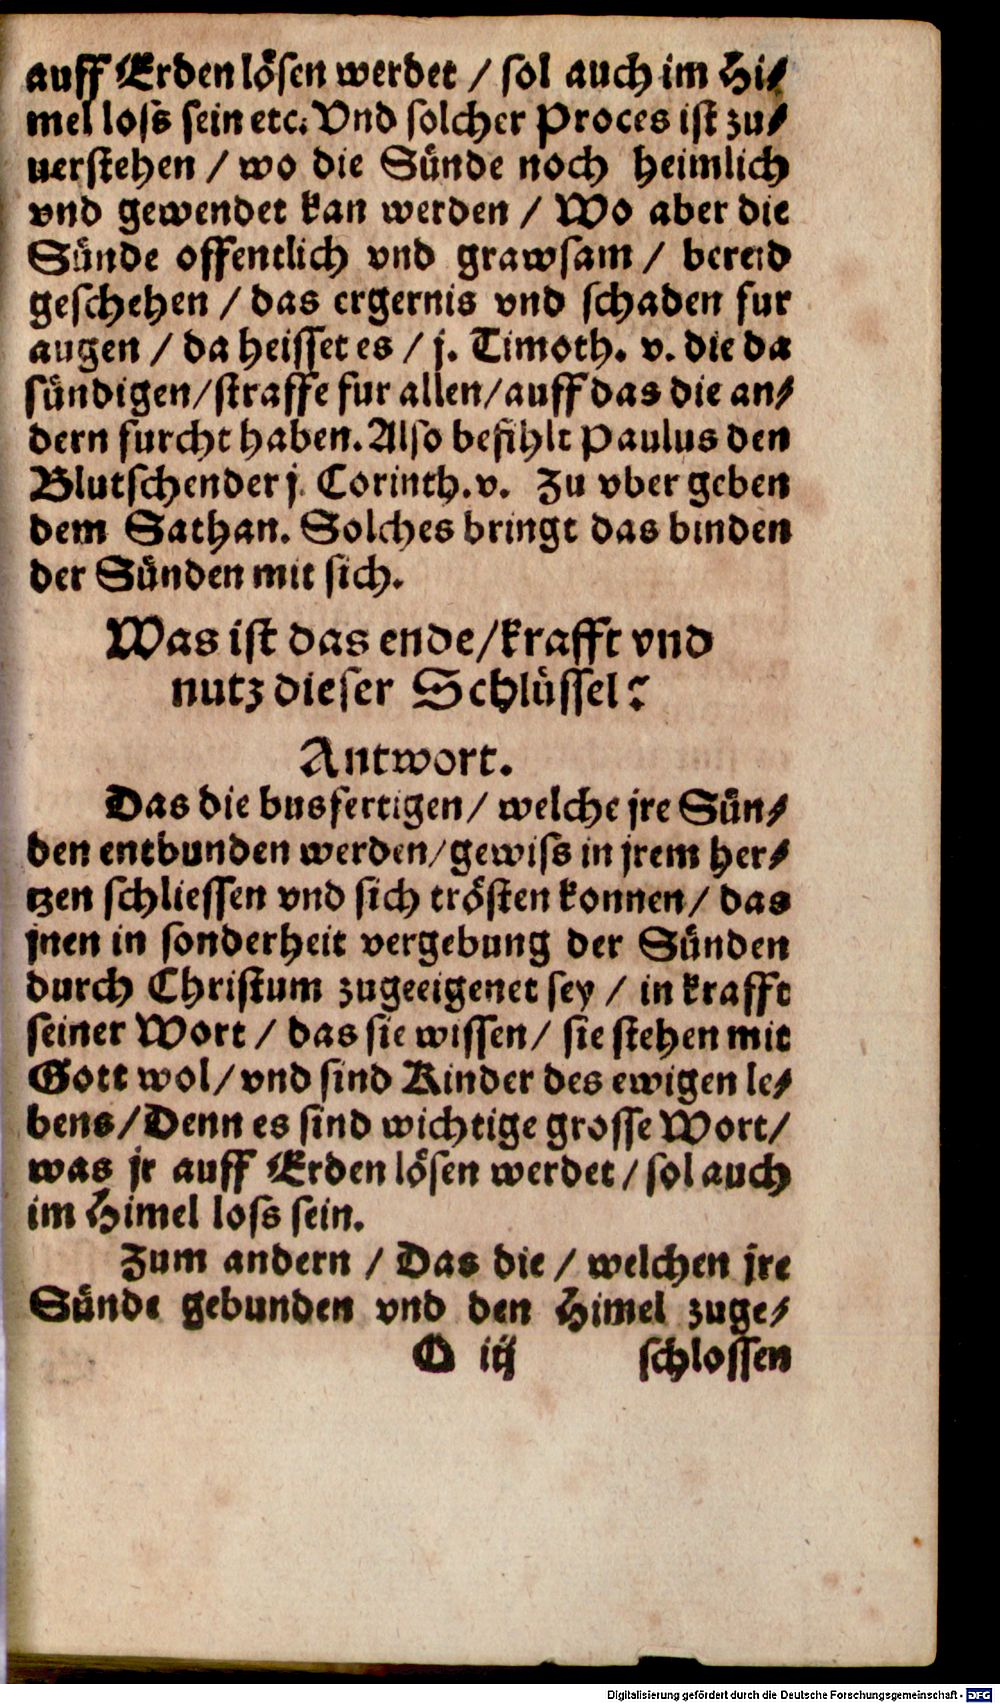 auff Erden lösen werdet / sol auch im Hi-
mel loss sein etc. Vnd solcher Proces ist zu-
uerstehen / wo die Sünde noch heimlich
vnd gewendet kan werden / Wo aber die
Sünde offentlich vnd grawsam / bereid
geschehen / das ergernis vnd schaden fur
augen / da heisset es / j. Timoth. v. die da
sündigen / straffe fur allen / auff das die an-
dern furcht haben. Also befihlt Paulus den
Blutschender j. Corinth. v. Zu vber geben
dem Sathan. Solches bringt das binden
der Sünden mit sich.
Was ist das ende / krafft vnd
nutz dieser Schlüssel?
Antwort.
Das die busfertigen / welche jre Sün-
den entbunden werden / gewiss in jrem her-
tzen schliessen vnd sich trösten konnen / das
jnen in sonderheit vergebung der Sünden
durch Christum zugeeigenet sey / in krafft
seiner Wort / das sie wissen / sie stehen mit
Gott wol / vnd sind Kinder des ewigen le-
bens / Denn es sind wichtige grosse Wort /
was jr auff Erden lösen werdet / sol auch
im Himel loss sein.
Zum andern / Das die / welchen jre
Sünde gebunden vnd den Himel zuge-
O iij schlossen
Digitalisierung gefördert durch die Deutsche Forschungsgemeinschaft - DFG